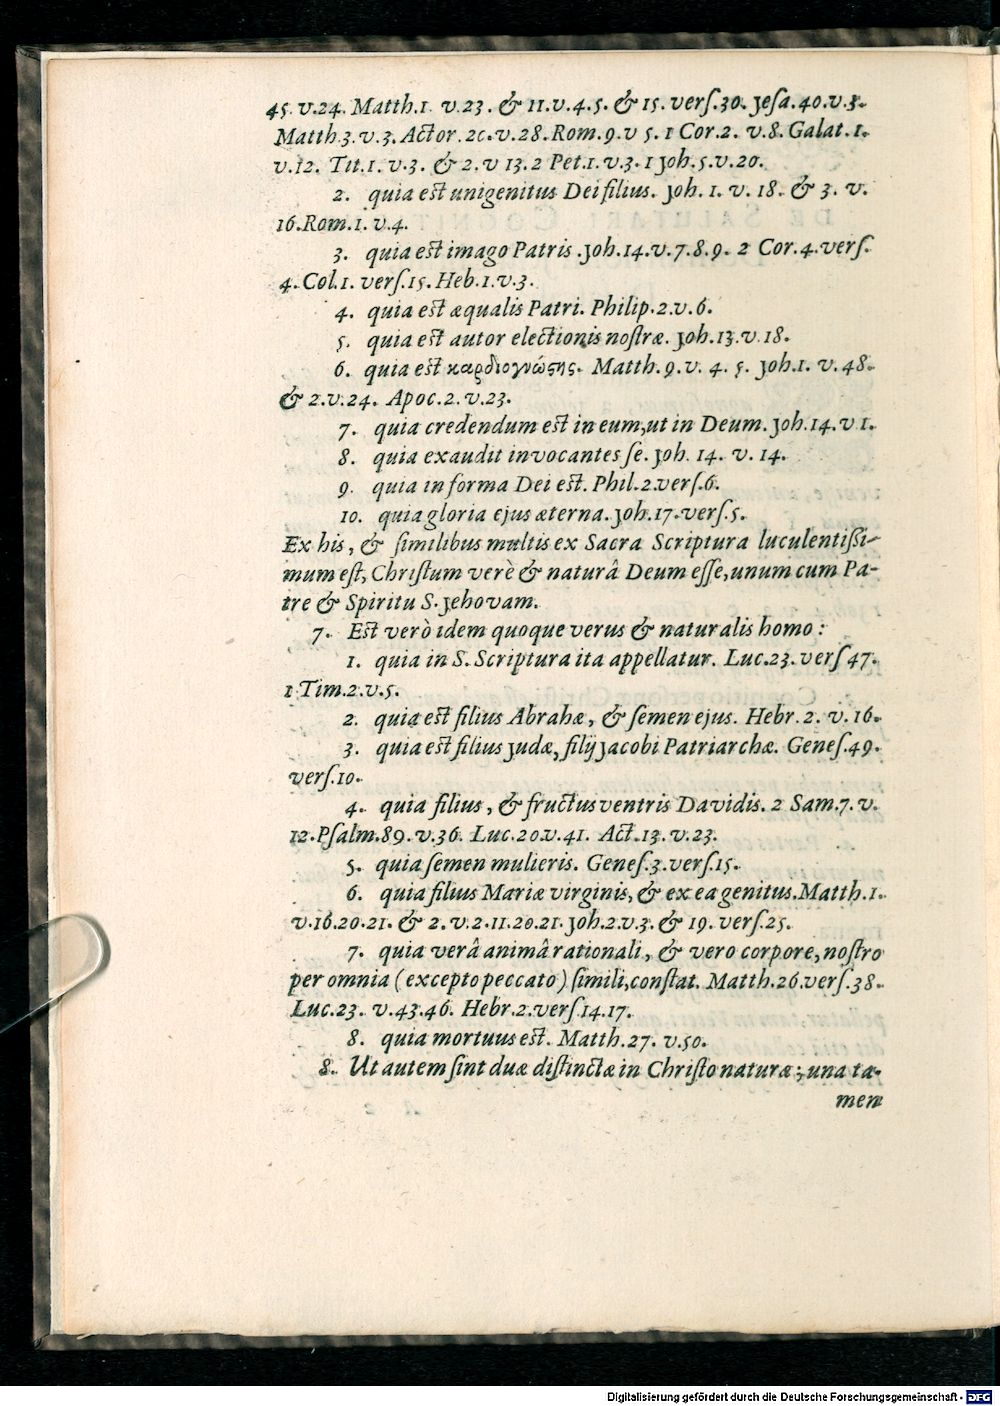 45. v.24. Matth.1. v.23. & 11.v.4.5. & 15. verſ.30. Jeſa.40.v.3.
Matth.3.v.3. Actor.20.v.28.Rom.9.v 5. 1 Cor.2. v.8.Galat.1.
v.12. Tit.1. v.3. & 2.v 13.2 Pet.1.v.3.1 Joh.5.v.20.
2. quia est unigenitus Dei filius. Joh. 1. v. 18. & 3. v.
16.Rom.1. v.4.
3. quia est imago Patris .Joh.14.v.7.8.9. 2 Cor.4.verſ.
4.Col.1. verſ.15.Heb.1.v.3.
4. quia est æqualis Patri. Philip.2.v.6.
5. quia est autor electionis noſtræ. Joh.13.v.18.
6. quia est καρδιογνώϛης. Matth.9.v. 4. 5. Joh.1. v.48.
& 2.v.24. Apoc.2.v.23.
7. quia credendum est in eum,ut in Deum.Joh.14.v 1.
8. quia exaudit invocantes ſe. Joh. 14. v. 14.
9. quia in forma Dei est. Phil.2.verſ.6.
10. quia gloria ejus æterna.Joh.17.verſ.5.
Ex his, & ſimilibus multis ex Sacra Scriptura luculentiſſi-
mum eſt, Chriſtum verè & naturâ Deum eſſe,unum cum Pa-
tre & Spiritu S.Jehovam.
7. Est verò idem quoque verus & naturalis homo :
1. quia in S.Scriptura ita appellatur. Luc.23.verſ 47.
1 Tim.2.v.5.
2. quia est filius Abrahæ, & ſemen ejus. Hebr.2. v.16.
3. quia est filius Judæ, filij Jacobi Patriarchæ. Geneſ.49.
verſ.10.
4. quia filius, & fructus ventris Davidis. 2 Sam.7. v.
12.Pſalm.89.v.36. Luc.20.v.41. Act.13.v.23.
5. quia ſemen mulieris. Geneſ.3.verſ.15.
6. quia filius Mariæ virginis, & ex ea genitus.Matth.1.
v.16.20.21. & 2.v.2.11.20.21.Joh.2.v.3. & 19. verſ.25.
7. quia verâ animâ rationali, & vero corpore,noſtro
per omnia (excepto peccato) ſimili,conſtat. Matth.26.verſ.38.
Luc.23. v.43.46. Hebr.2.verſ.14.17.
8. quia mortuus est. Matth.27. v.50.
8. Ut autem ſint duæ diſtinctæ in Chriſto naturæ; una ta-
men
Digitalisierung gefördert durch die Deutsche Forschungsgemeinschaft - DFG